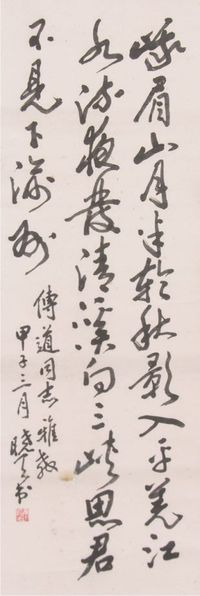 峨眉山月半輪秋影入平羌江
水流夜發清溪向三峽思君
不見下渝州
傳道同志雅教
甲子三月 書